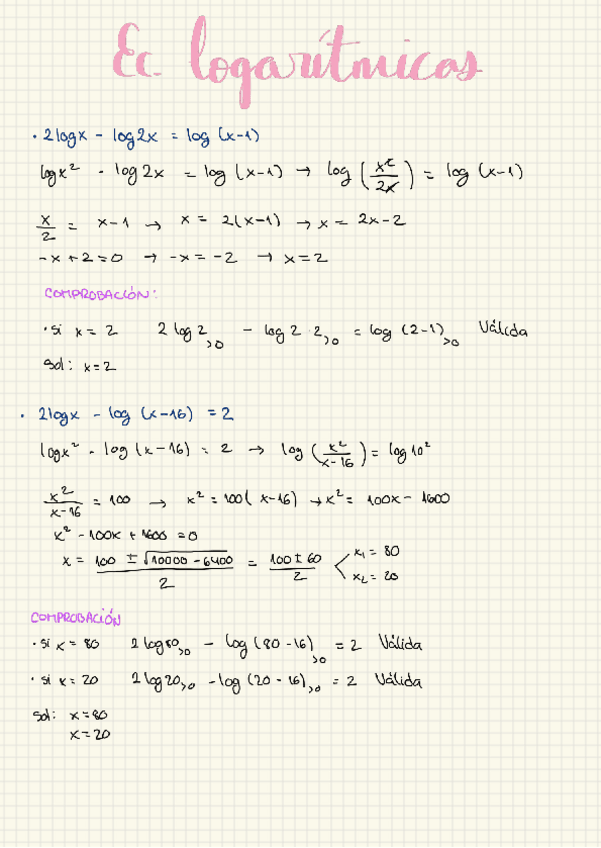 Ec. logarítmicas
· 2logx - log2x = log (x-1)
logx² - log2x = log (x-1) → log (x²/2x) = log (x-1)
x/2 = x-1 → x = 2(x-1) → x = 2x-2
-x+2=0 → -x = -2 → x=2
COMPROBACIÓN:
· si x = 2 2 log 2>0 - log 2·2>0 = log (2-1)>0 Válida
Sol: x=2
· 2logx - log (x-16) = 2
logx² - log (x-16) = 2 → log (x²/x-16) = log10²
x²/x-16 = 100 → x² = 100(x-16) → x² = 100x - 1600
x² - 100x + 1600 = 0
x = 100 ± √10000 - 6400 / 2 = 100 ± 60 / 2 < x₁ = 80 x₂ = 20
COMPROBACIÓN
· si x = 80 2 log80>0 - log (80-16)>0 = 2 Válida
· si x = 20 2 log20>0 - log (20-16)>0 = 2 Válida
Sol: x=80
x=20